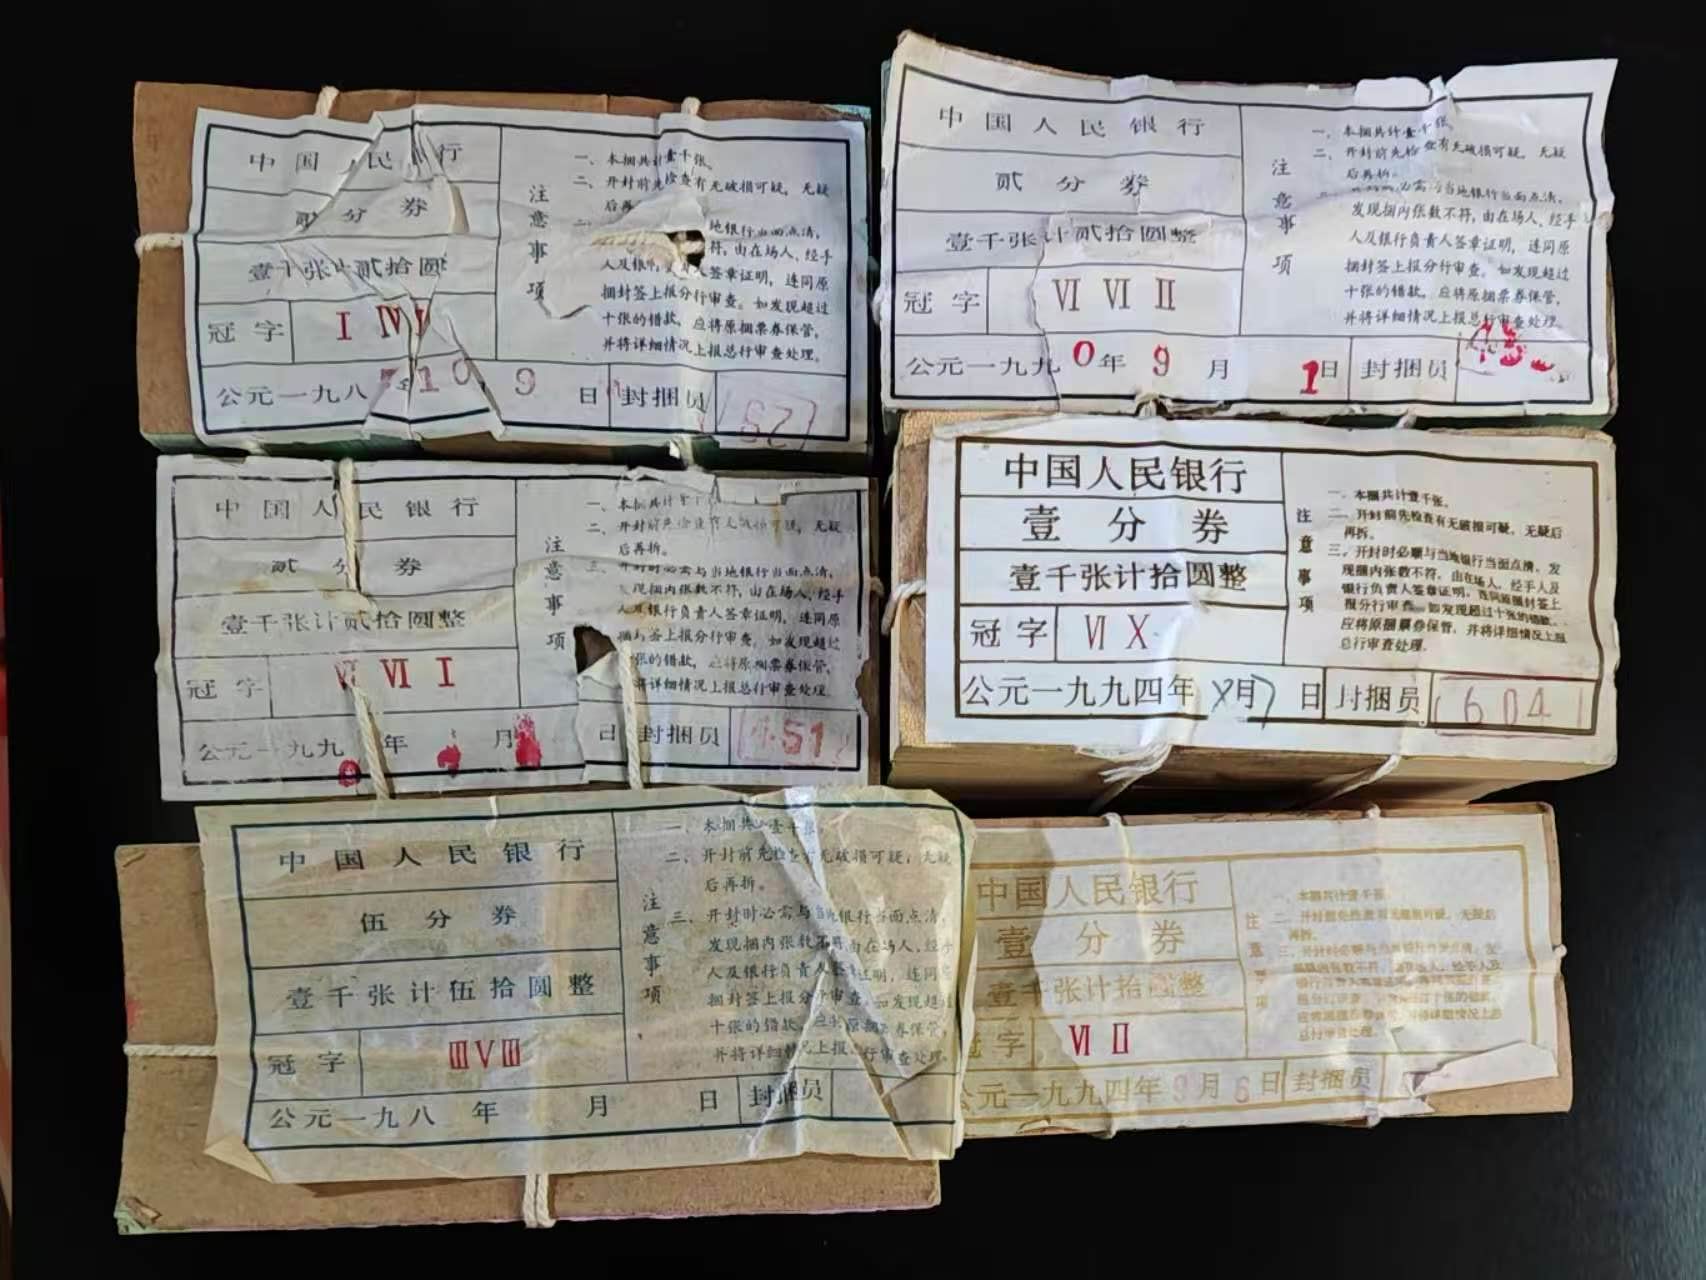 中国人民银行
贰分券
壹千张计贰拾圆
冠字 I IV I
公元一九八 年10 9 日 封捆员
注意事项
一、本捆共计壹千张。
二、开封前先检查有无破损可疑，无疑
后再
地银行当面点清，
符，由在场人、经手
人及银 签章证明，连同原
捆封签上报分行审查。如发现超过
十张的错款，应将原捆票券保管，
并将详细情况上报总行审查处理。
中国人民银行
贰分券
壹千张计贰拾圆整
冠字 VI VI II
公元一九九0年9月1日 封捆员
注意事项
一、本捆共计壹千张
二、开封前先检查有无破损可疑，无疑
后再拆。
必需与当地银行当面点清，
发现捆内张数不符，由在场人、经手
人及银行负责人签章证明，连同原
捆封签上报分行审查。如发现超过
十张的错款，应将原捆票券保管，
并将详细情况上报总行审查处理
中国人民银行
贰分券
壹千张计贰拾圆整
冠字 VI VI I
公元一九九 年 月 日 封捆员 51
注意事项
一、本捆共计壹千
二、开封前先检查有无破损可疑，无疑
后再拆。
三、开封时必需与当地银行当面点清，
发现捆内张数不符，由在场人、经手
人及银行负责人签章证明，连同原
捆封签上报分行审查，如发现超过
张的错款，应将原捆票券保管，
将详细情况上报总行审查处理
中国人民银行
壹分券
壹千张计拾圆整
冠字 VI X
公元一九九四年X月7日 封捆员 604
注意事项
一、本捆共计壹千张。
二、开封前先检查有无破损可疑，无疑后
再拆。
三、开封时必顺与当地银行当面点清，发
现捆内张数不符，由在场人，经手人及
银行负责人签章证明，连同原捆封签上
报分行审查。如发现超过十张的错款，
应将原捆票券保管，并将详细情况上报
总行审查处理.
中国人民银行
伍分券
壹千张计伍拾圆整
冠字 III V III
公元一九八 年 月 日 封捆员
注意事项
一、本捆共 壹千张，
二、开封前先检查有无破损可疑，无疑
后再拆。
三、开封时必需与当地银行当面点清，
发现捆内张数不符，由在场人、经手
人及银行负责人签章证明，连同
捆封签上报分行审查，如发现超过
十张的错款，应将原捆票券保管，
并将详细情况上报总行审查处理，
中国人民银行
壹分券
壹千张计拾圆整
冠字 VI II
公元一九九四年9月6日 封捆员
注意事项
一、本捆共计壹千张。
二、开封前先检查有无破损可疑，无疑后
再拆。